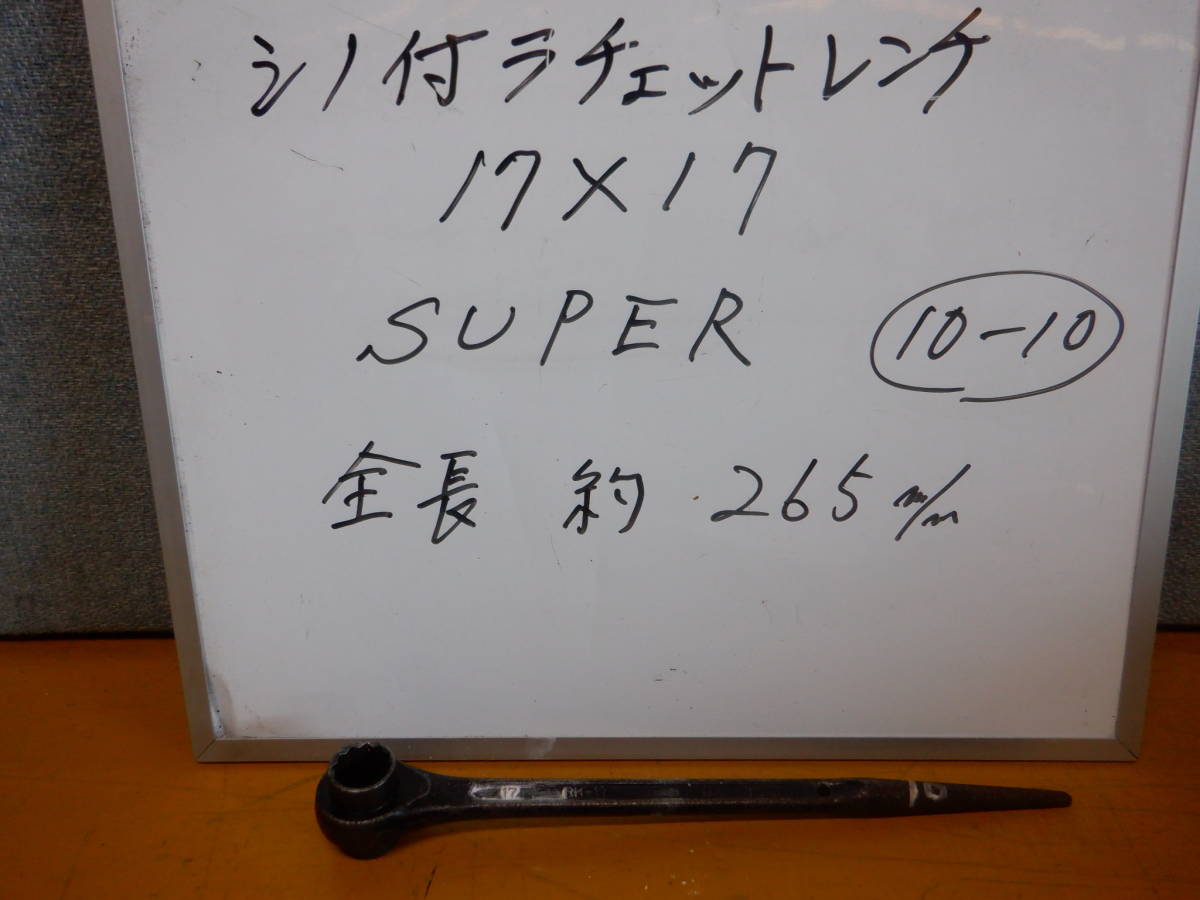 シノ付ラチェットレンチ
17×17
SUPER 10-10
全長 約 265 m/m
17